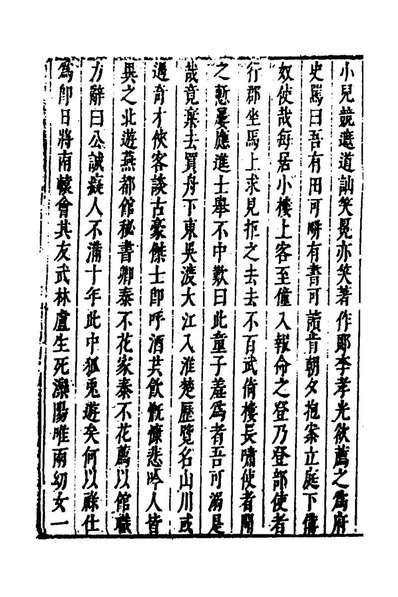 小兒競遮道訕笑冕亦笑著作郎李孝光欲薦之爲府
史冕曰吾有田可畊有書可讀肯朝夕抱案立庭下僃
奴使哉每居小樓上客至僮入報命之登乃登部使者
行郡坐馬上求見拒之去去不百武倚樓長嘯使者聞
之慙屢應進士舉不中歎曰此童子羞爲者吾可溺是
哉竟棄去買舟下東吳渡大江入淮楚歷覽名山川或
遇奇才俠客談古豪傑士即呼酒共飲慨慷悲吟人皆
異之北遊燕都館秘書卿泰不花家泰不花薦以館職
力辭曰公誠癡人不滿十年此中狐兎遊矣何以祿仕
爲卽日將南轅會其友武林盧生死灤陽唯兩幼女一